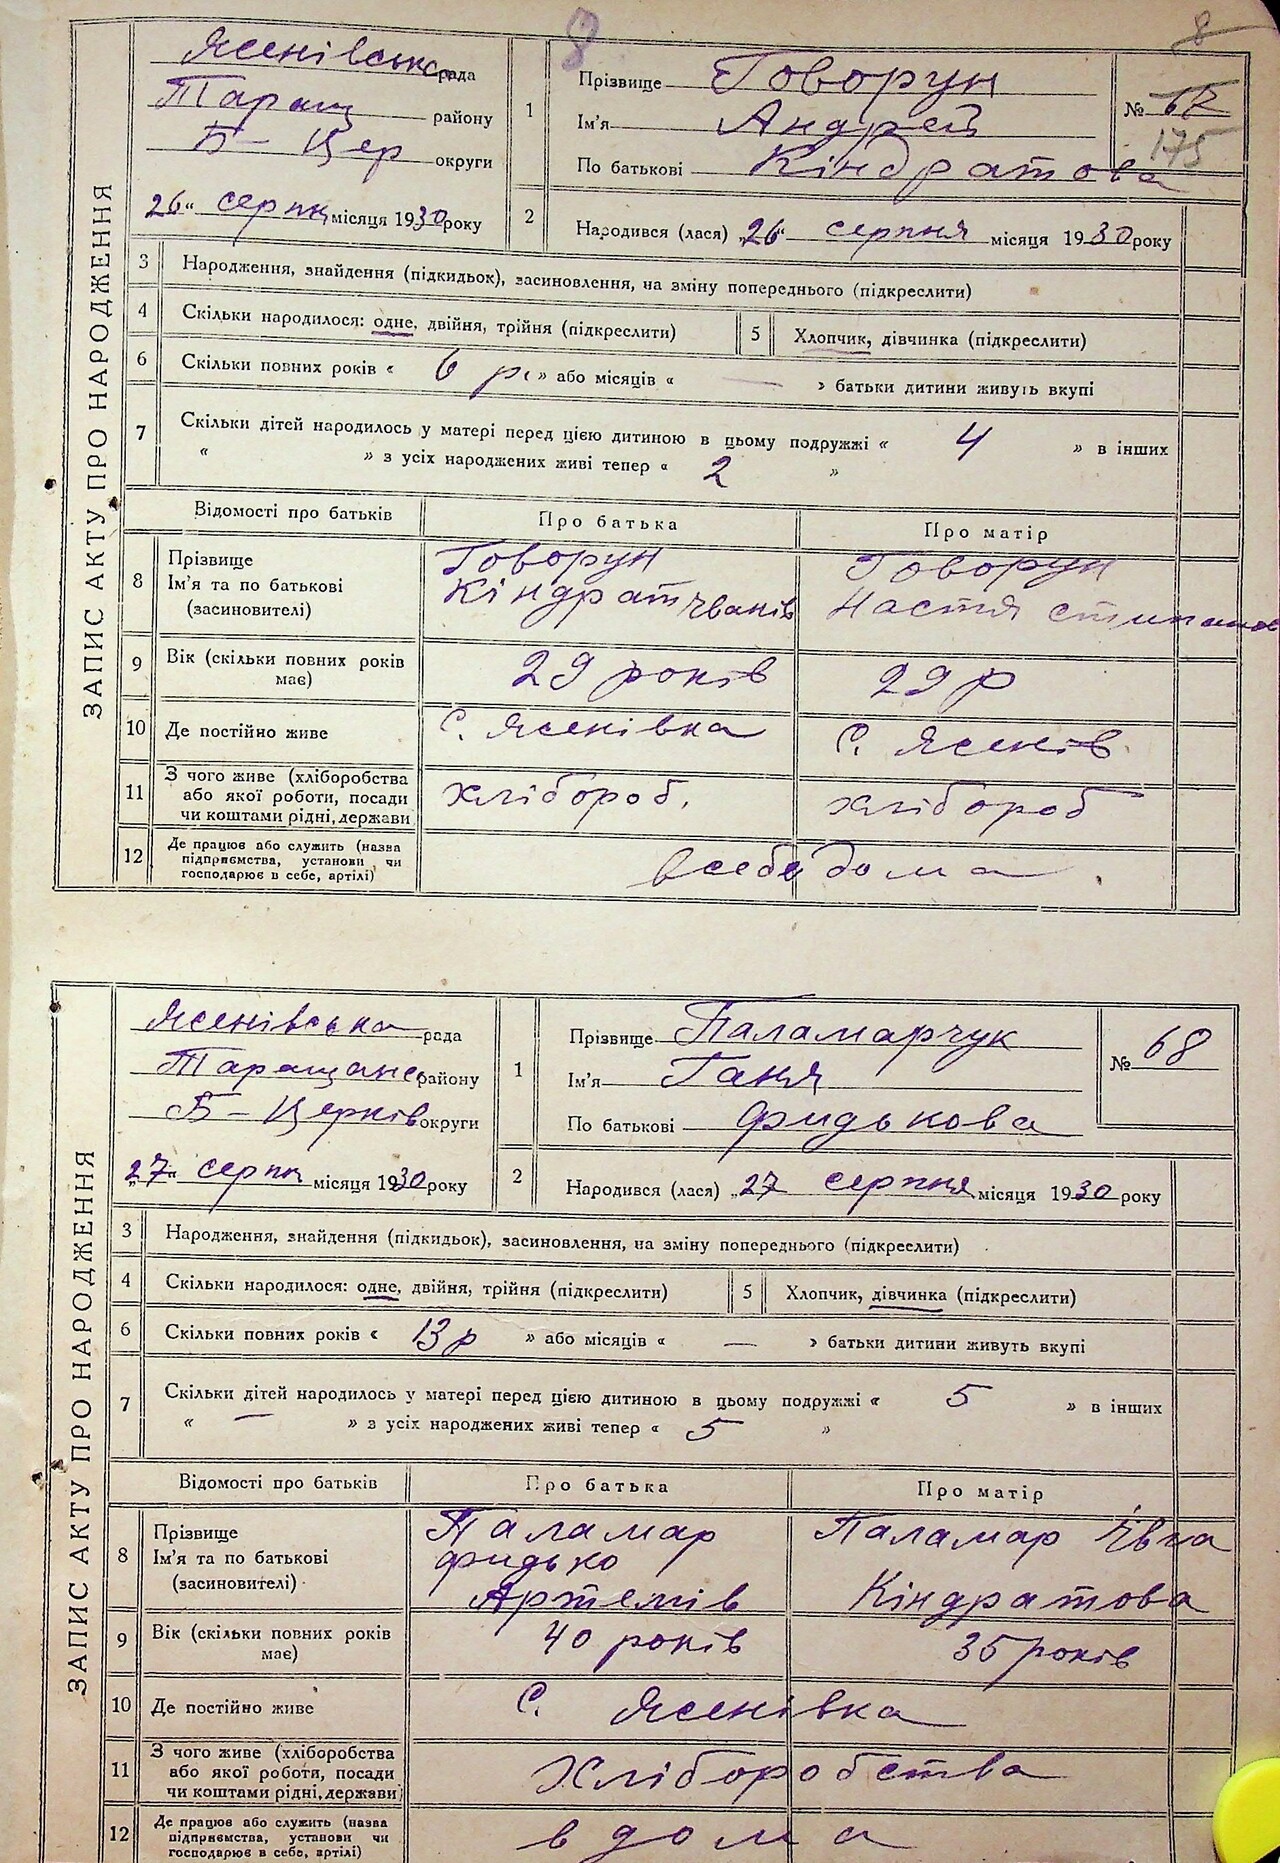 8
8
ЗАПИС АКТУ ПРО НАРОДЖЕННЯ
Ясенівська рада
Таращ району
Б- Цер округи
26" серпн місяця 1930 року
1
Прізвище Говорун
Ім'я Андрей
По батькові Кіндратова
№ 67
175
2
Народився (лася) "26" серпня місяця 1930 року
3 Народження, знайдення (підкидьок), засиновлення, на зміну попереднього (підкреслити)
4 Скільки народилося: одне, двійня, трійня (підкреслити) 5 Хлопчик, дівчинка (підкреслити)
6 Скільки повних років « 6 р. » або місяців « — » батьки дитини живуть вкупі
7 Скільки дітей народилось у матері перед цією дитиною в цьому подружжі « 4 » в інших
« » з усіх народжених живі тепер « 2 »
Відомості про батьків Про батька Про матір
8
Прізвище
Ім'я та по батькові
(засиновителі)
Говорун
Кіндрат Іванів
Говорун
Настя
9
Вік (скільки повних років
має)
29 років 29 р
10 Де постійно живе с. Ясенівка с. Ясенів
11
З чого живе (хліборобства
або якої роботи, посади
чи коштами рідні, держави
хлібороб. хлібороб
12
Де працює або служить (назва
підприємства, установи чи
господарює в себе, артілі)
в себе дома
ЗАПИС АКТУ ПРО НАРОДЖЕННЯ
Ясенівська рада
Таращанс району
Б- Церків округи
"27" серпн місяця 1930 року
1
Прізвище Паламарчук
Ім'я Ганя
По батькові Фидькова
№ 68
2
Народився (лася) "27 серпня місяця 1930 року
3 Народження, знайдення (підкидьок), засиновлення, на зміну попереднього (підкреслити)
4 Скільки народилося: одне, двійня, трійня (підкреслити) 5 Хлопчик, дівчинка (підкреслити)
6 Скільки повних років « 13 р » або місяців « — » батьки дитини живуть вкупі
7 Скільки дітей народилось у матері перед цією дитиною в цьому подружжі « 5 » в інших
« — » з усіх народжених живі тепер « 5 »
Відомості про батьків Про батька Про матір
8
Прізвище
Ім'я та по батькові
(засиновителі)
Паламар
Фидько
Артемів
Паламар Івка
Кіндратова
9
Вік (скільки повних років
має)
40 років 35 років
10 Де постійно живе с. Ясенівка
11
З чого живе (хліборобства
або якої роботи, посади
чи коштами рідні, держави)
Хліборобства
12
Де працює або служить (назва
підприємства, установи чи
господарює в себе, артілі)
в дома